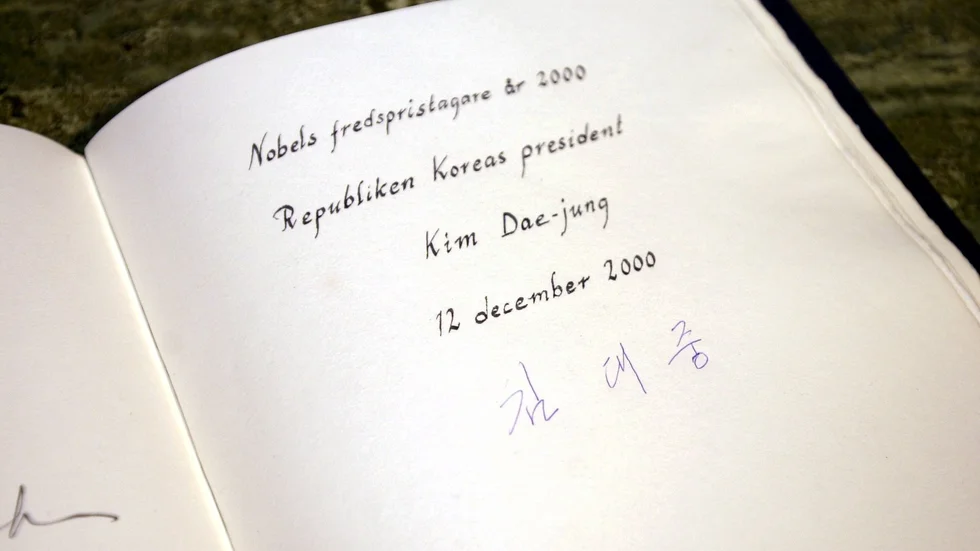 Nobels fredspristagare år 2000
Republiken Koreas president
Kim Dae-jung
12 december 2000
김 대 중